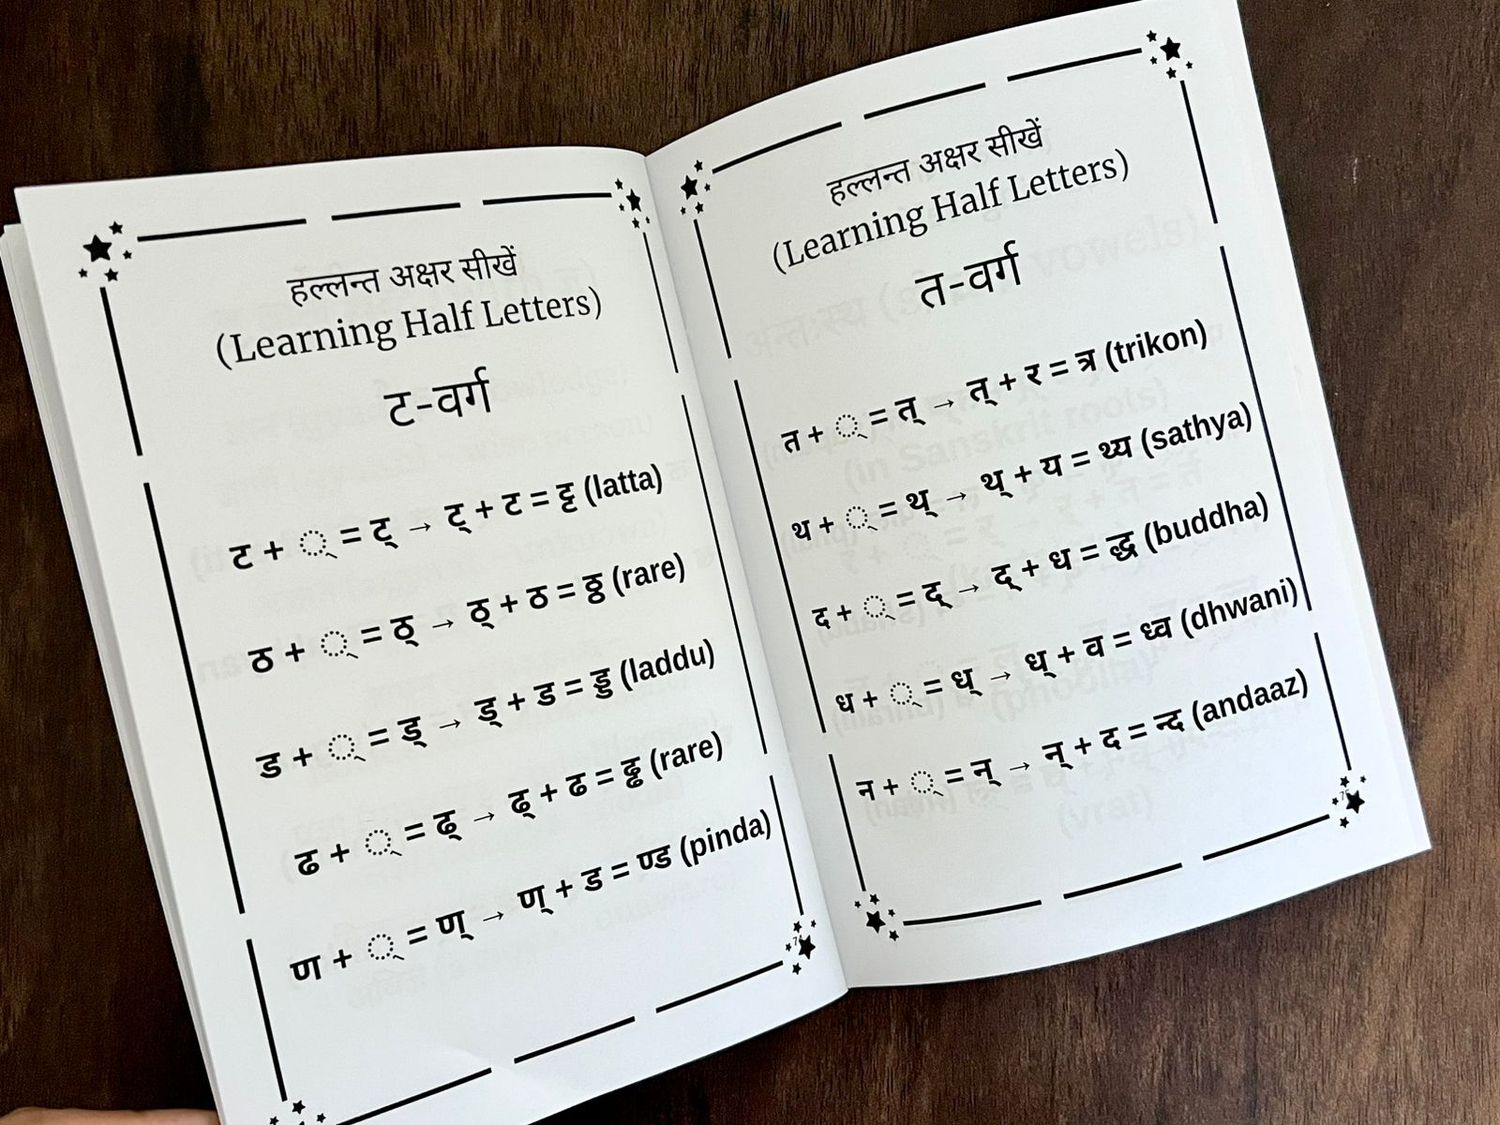 हल्लन्त अक्षर सीखें
(Learning Half Letters)
ट-वर्ग
ट + ् = ट् → ट् + ट = ट्ट (latta)
ठ + ् = ठ् → ठ् + ठ = ठ्ठ (rare)
ड + ् = ड् → ड् + ड = ड्ड (laddu)
ढ + ् = ढ् → ढ् + ढ = ढ्ढ (rare)
ण + ् = ण् → ण् + ड = ण्ड (pinda)
हल्लन्त अक्षर सीखें
(Learning Half Letters)
त-वर्ग
त + ् = त् → त् + र = त्र (trikon)
थ + ् = थ् → थ् + य = थ्य (sathya)
द + ् = द् → द् + ध = द्ध (buddha)
ध + ् = ध् → ध् + व = ध्व (dhwani)
न + ् = न् → न् + द = न्द (andaaz)